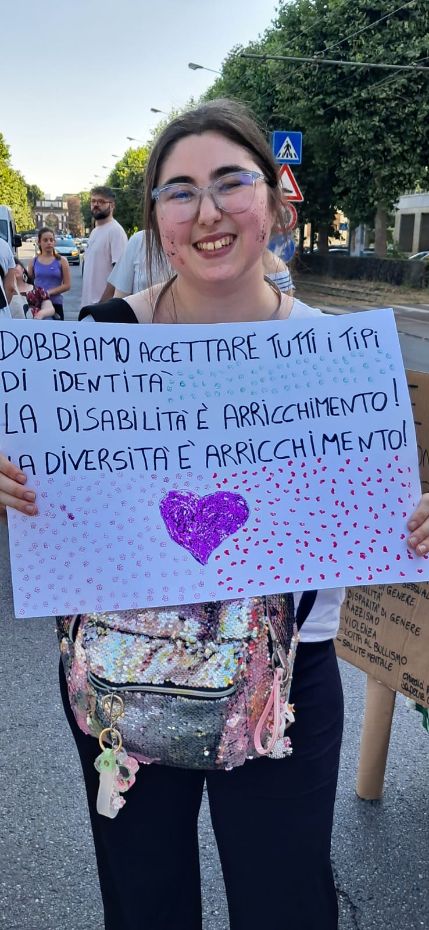 DOBBIAMO ACCETTARE TUTTI I TIPI
DI IDENTITÀ
LA DISABILITÀ È ARRICCHIMENTO!
LA DIVERSITÀ È ARRICCHIMENTO!
GENERE
DISPARITÀ DI GENERE
RAZZISMO
VIOLENZA
LOTTA AL BULLISMO
SALUTE MENTALE